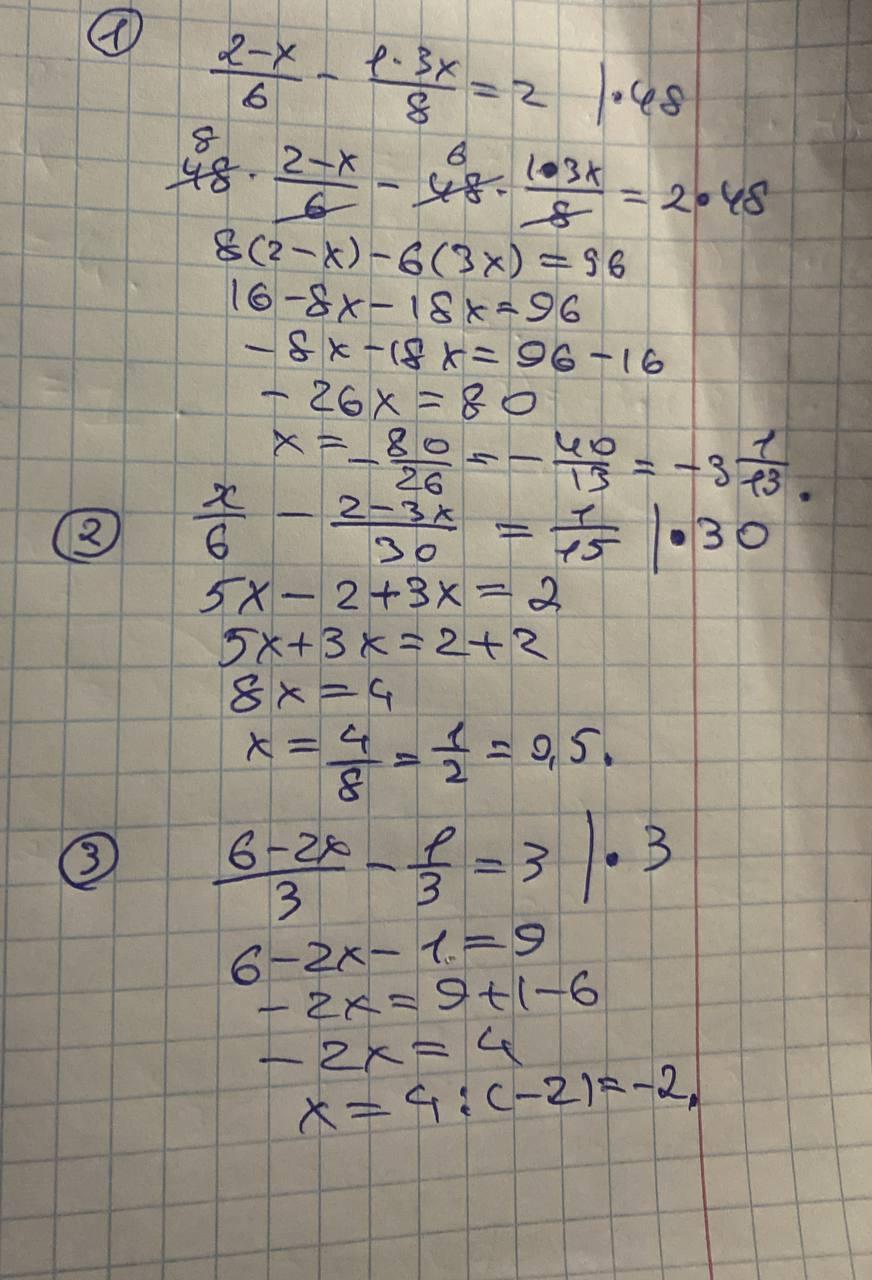 ① (2-x)/6 - (1·3x)/8 = 2 |·48
8 6
48 · (2-x)/6 - 48 · (1·3x)/8 = 2·48
8(2-x)-6(3x)=96
16-8x-18x=96
-8x-18x=96-16
-26x=80
x=-80/26=-40/13=-3 1/13.
② x/6 - (2-3x)/30 = 1/15 |·30
5x-2+3x=2
5x+3x=2+2
8x=4
x=4/8=1/2=0,5.
③ (6-2x)/3 - 1/3 = 3 |·3
6-2x-1=9
-2x=9+1-6
-2x=4
x=4:(-2)=-2.